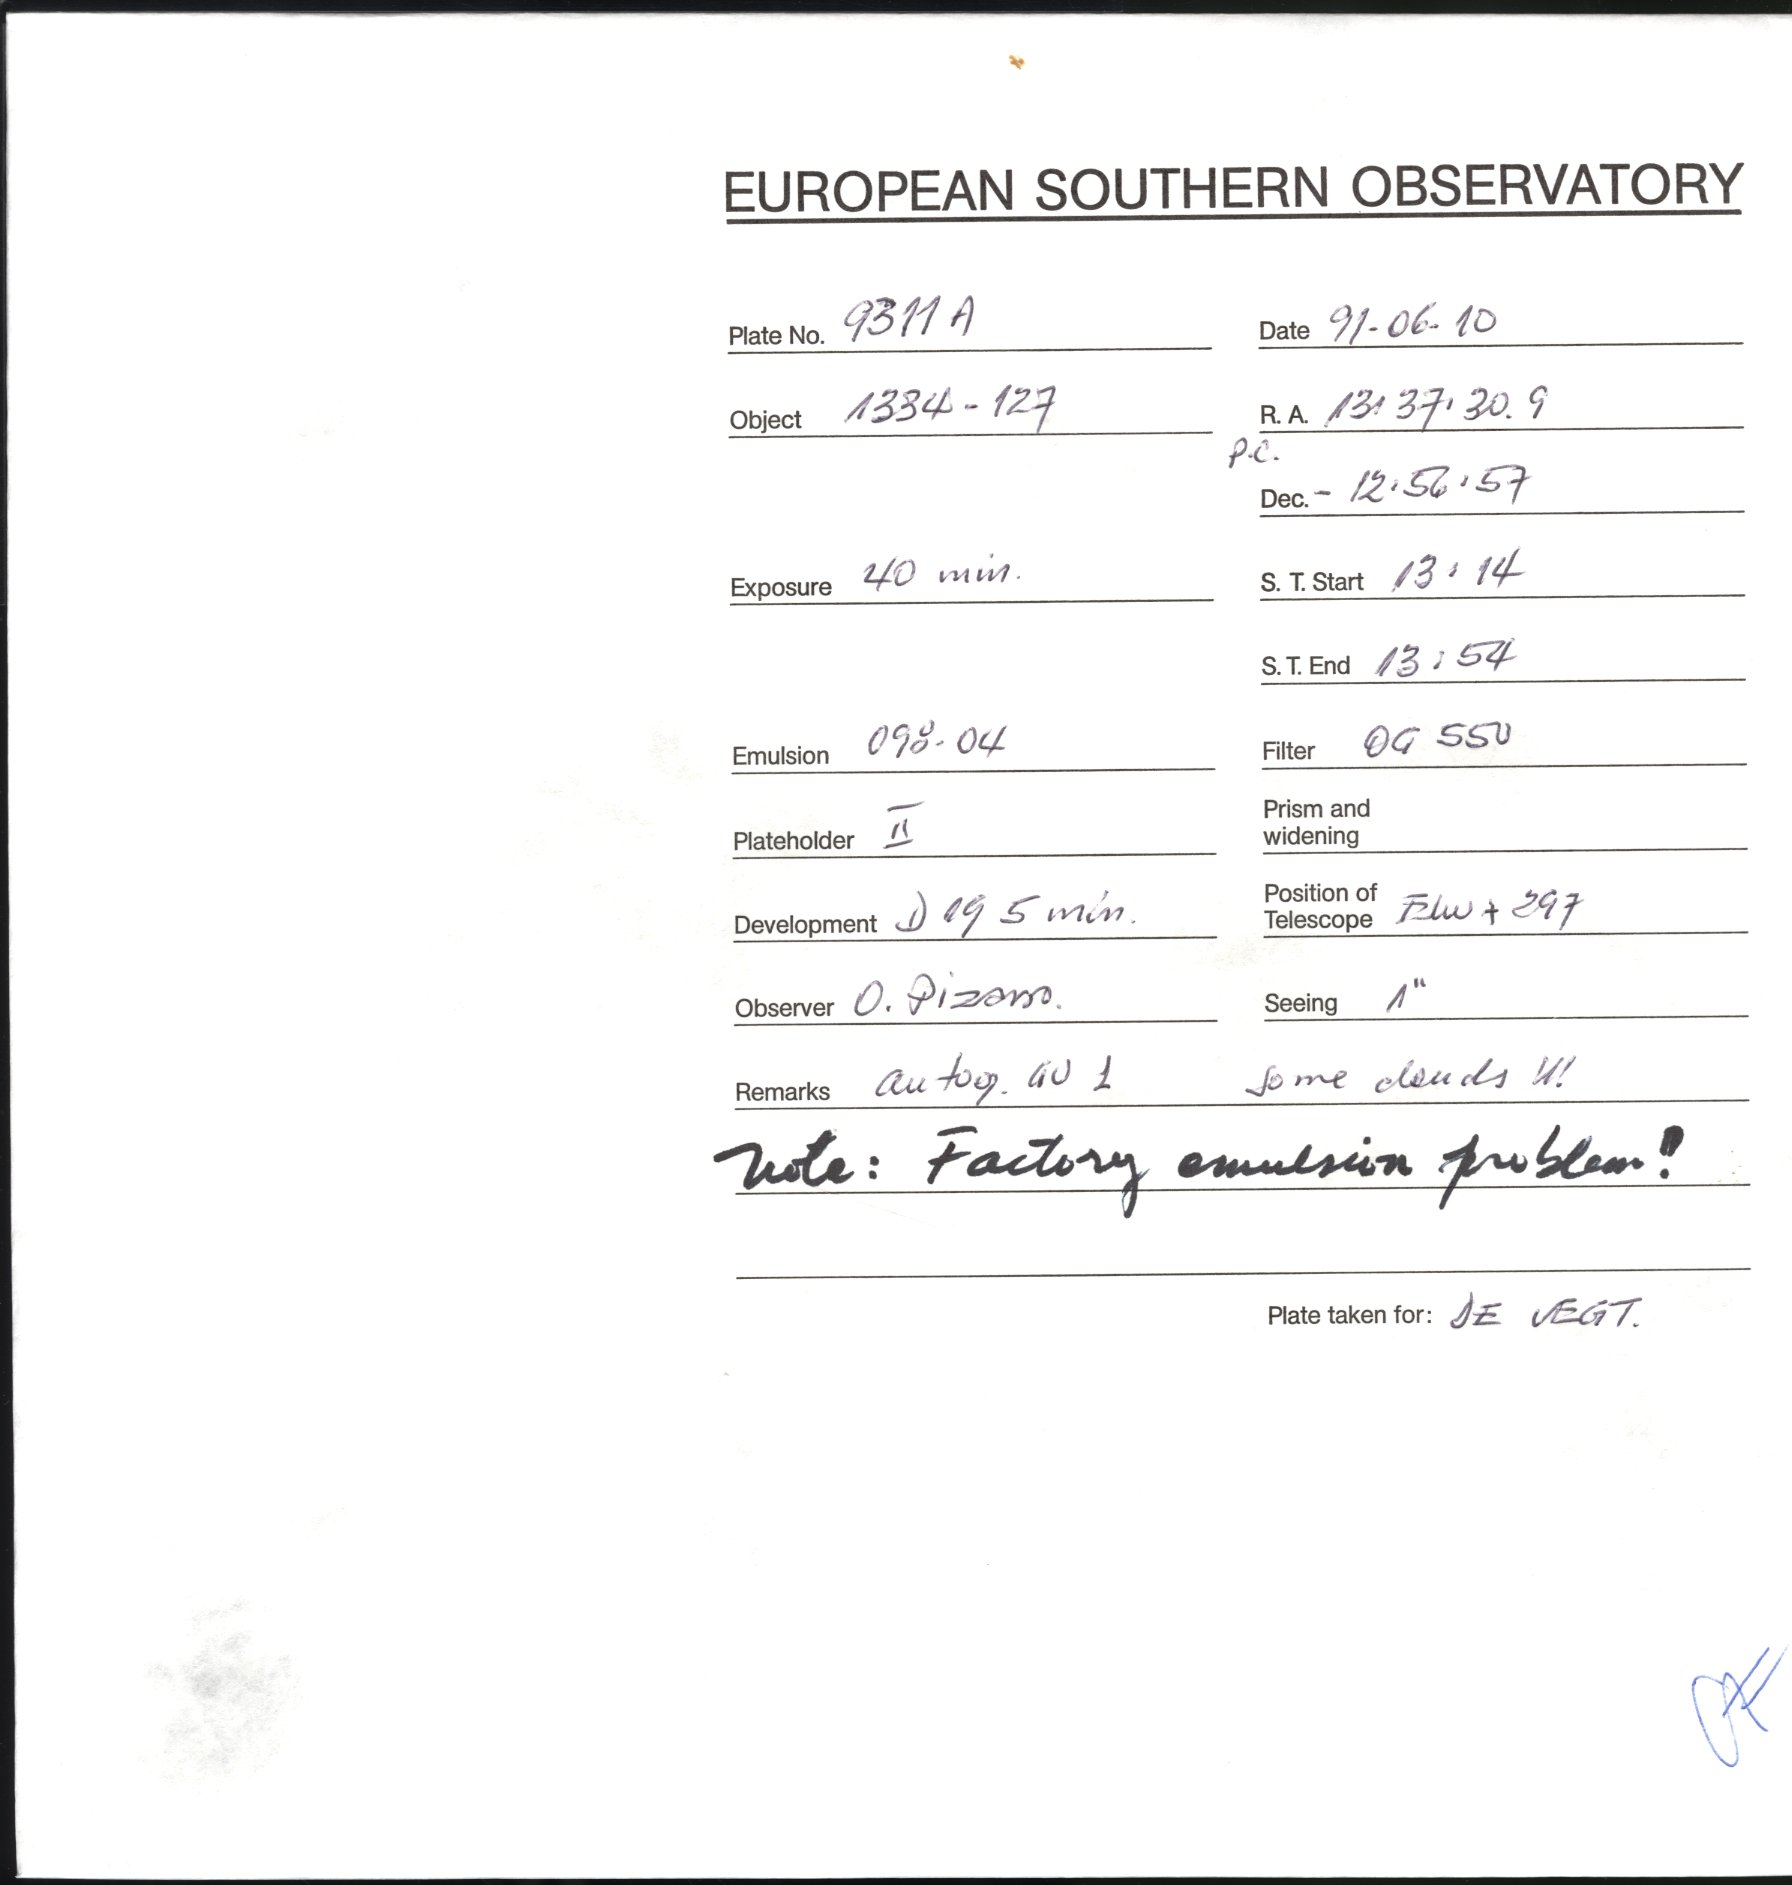 EUROPEAN SOUTHERN OBSERVATORY
Plate No. 9311 A Date 91-06-10
Object 1334-127 R. A. 13:37:30.9
P.C.
Dec. - 12:56:57
Exposure 40 min. S. T. Start 13:14
S. T. End 13:54
Emulsion 098-04 Filter OG 550
Plateholder II Prism and widening
Development D 19 5 min. Position of Telescope + 297
Observer O. Pizarro. Seeing 1"
Remarks autog. 1 some clouds
Note: Factory emulsion problem!
Plate taken for: DE VEGT.